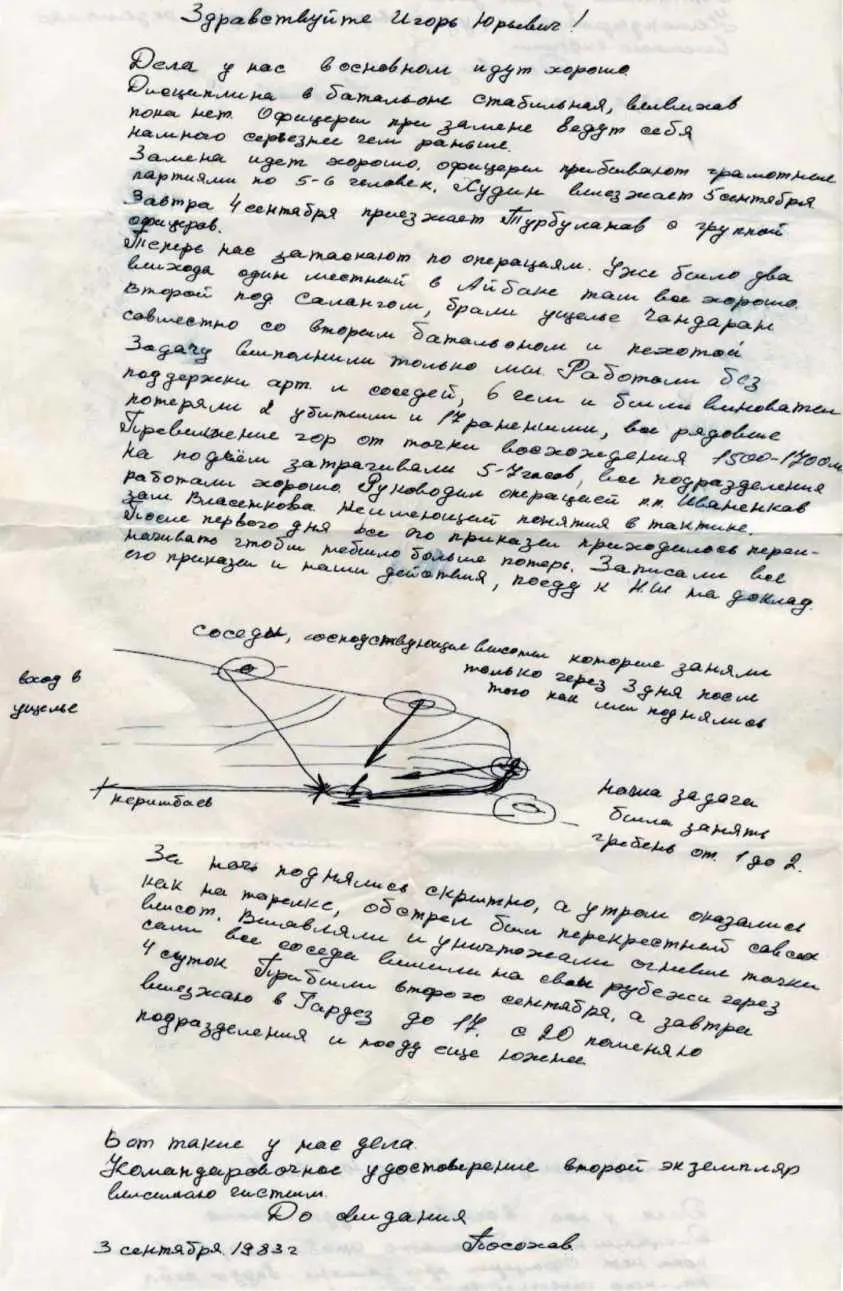 Здравствуйте Игорь Юрьевич!
Дела у нас в основном идут хорошо
Дисциплина в батальоне стабильная, вывихав
пока нет. Офицеры при замене ведут себя
намного серьезнее чем раньше.
Замена идет хорошо, офицеры прибывают грамотные
партиями по 5-6 человек. Худин выезжает 5 сентября
Завтра 4 сентября приезжает Турбуланав с группой
офицеров.
Теперь нас затаскают по операциям. Уже было два
выхода один местный в Айбане таш все хорошо.
Второй под Салангом, брали ущелье Чандаран
совместно со вторым батальоном и пехотой
Задачу выполнили только мы. Работали без
поддержки арт. и соседей, в чем и были виноваты
потеряли 2 убитыми и 17 ранеными, все рядовые
Превышение гор от точки восхождения 1500-1700м
на подъём затрачивали 5-7 часов, все подразделения
работали хорошо. Руководил операцией пп. Иваненкав
зам Власенкова. Неимеющий понятия в тактике.
После первого дня все его приказы приходилось переи-
начивать чтобы небыло больше потерь. Записали все
его приказы и наши действия, поеду к НШ на доклад.
соседы, господствующие высоты которые заняли
только через 3 дня после
того как мы поднялись
вход в
ущелье
1
2
наша задача
была занять
гребень от 1 до 2.
За ночь поднялись скрытно, а утром оказались
как на тарелке, обстрел был перекрестный савсех
высот. Выявляли и уничтожали огневые точки
сами все соседы вышли на свои рубежи через
4 суток Прибыли второго сентября, а завтра
выезжаю в Гардез до 17. с 20 поменяю
подразделения и поеду еще южнее
Вот такие у нас дела.
Командировочное удостоверение второй экземпляр
высылаю чистым.
До свидания
3 сентября 1983 г Посохав.